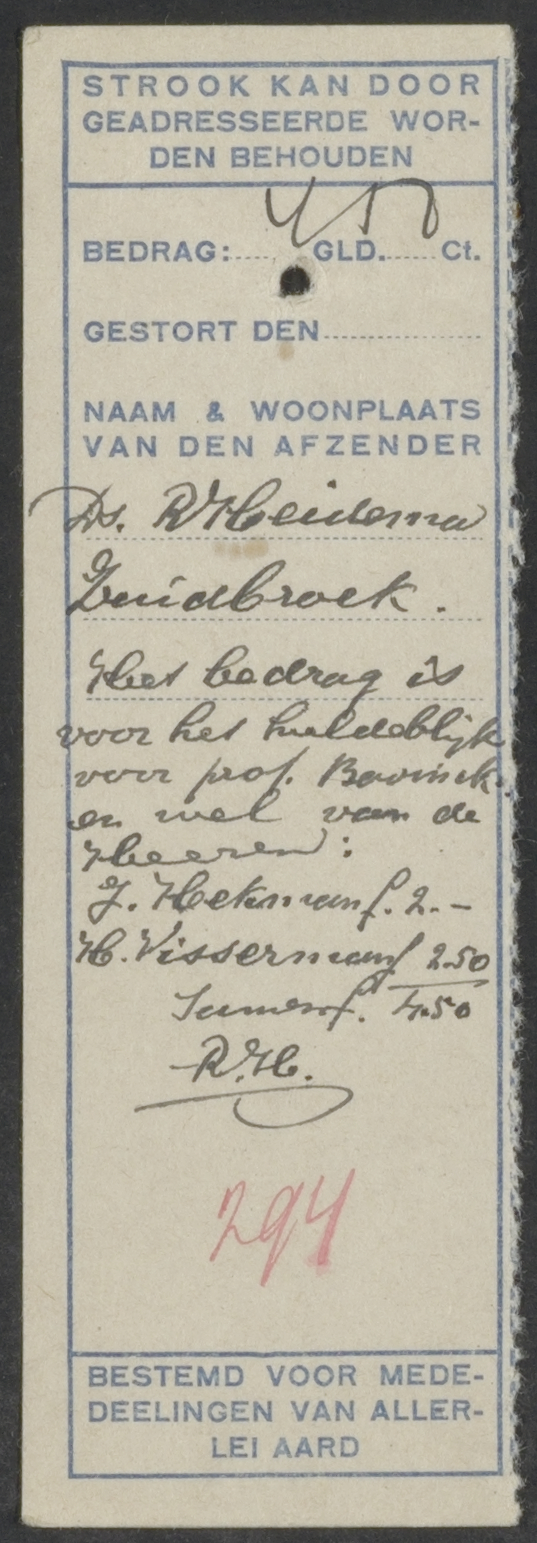 STROOK KAN DOOR
GEADRESSEERDE WOR-
DEN BEHOUDEN
4 50
BEDRAG: GLD. Ct.
GESTORT DEN
NAAM & WOONPLAATS
VAN DEN AFZENDER
Ds. R Heidema
Zuidbroek.
Het bedrag is
voor het huldeblijk
voor prof. Bavinck.
en wel van de
Heeren:
J. Hekman f. 2.-
H. Visserman f 2.50
Samen f. 4.50
R.H.
294
BESTEMD VOOR MEDE-
DEELINGEN VAN ALLER-
LEI AARD